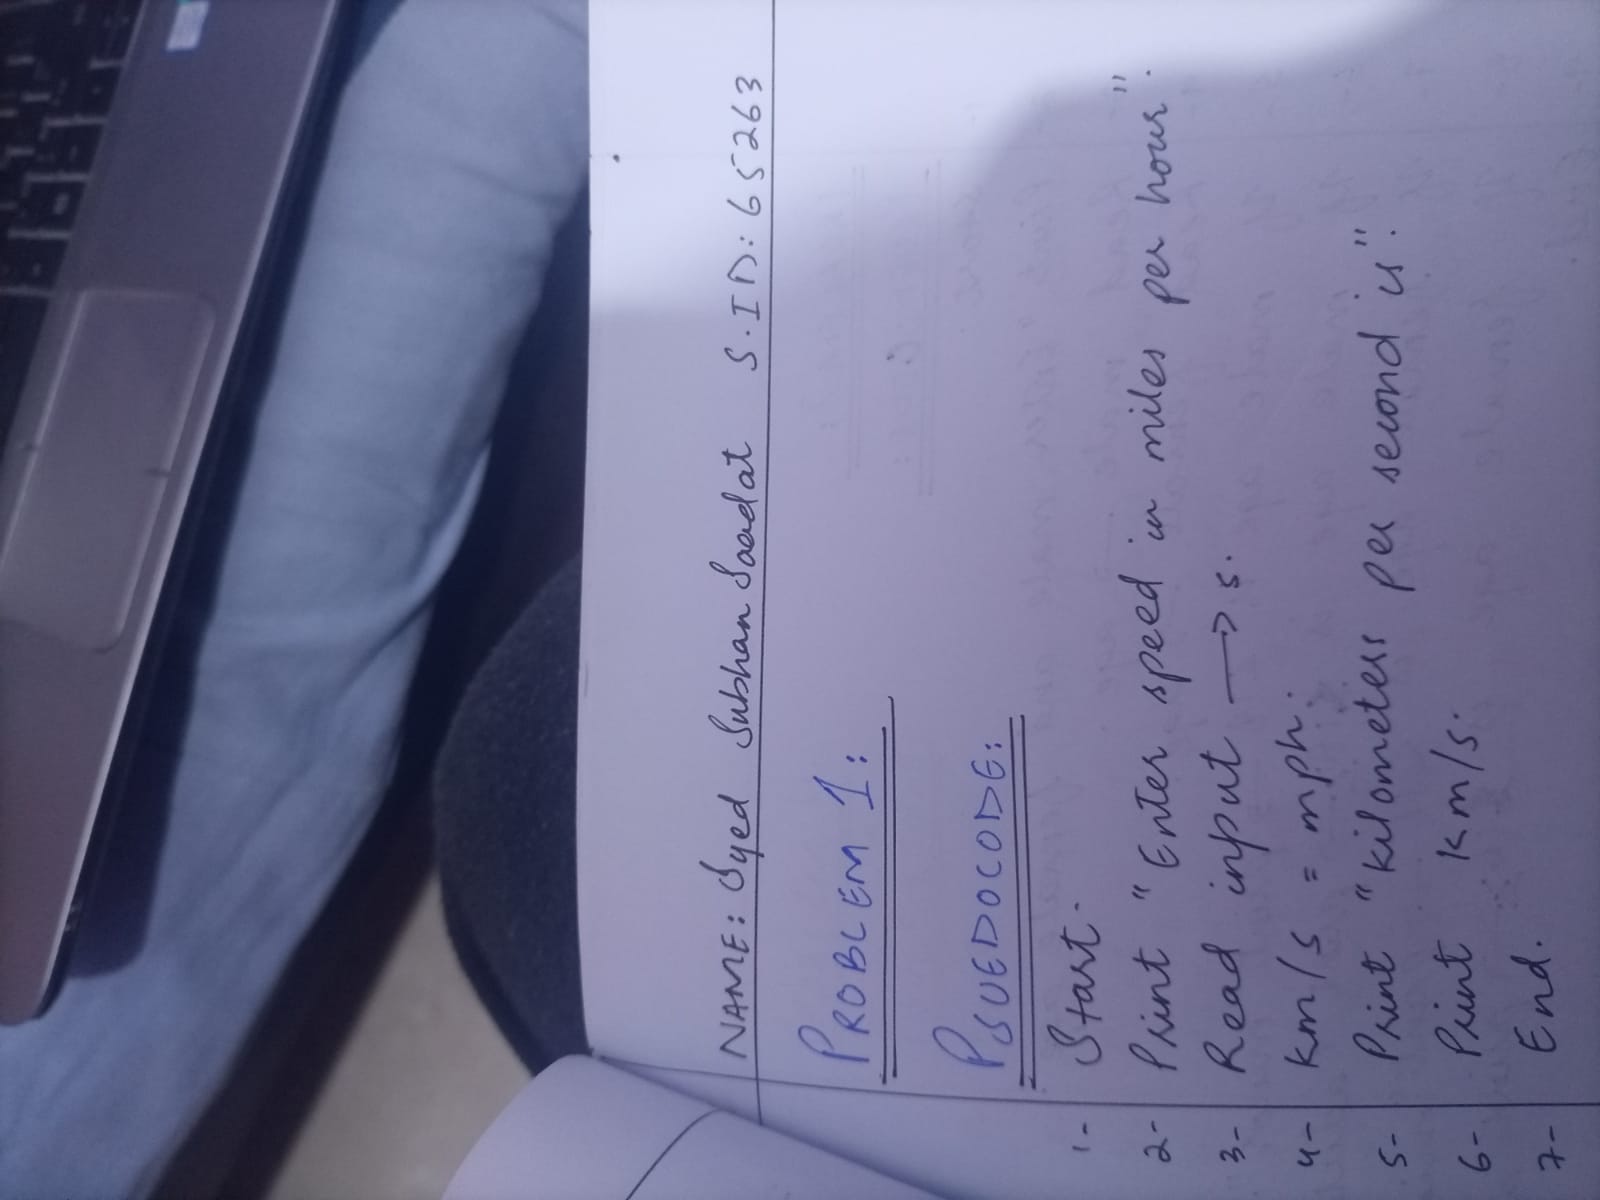 NAME: Syed Subhan Saadat S.ID: 65263
PROBLEM 1:
PSUEDOCODE:
1- Start.
2- Print "Enter speed in miles per hour".
3- Read input → s.
4- km/s = mph.
5- Print "kilometers per second is".
6- Print km/s.
7- End.